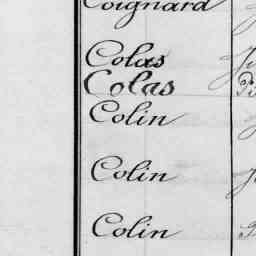 Coignard
Colas
Colas
Colin
Colin
Colin